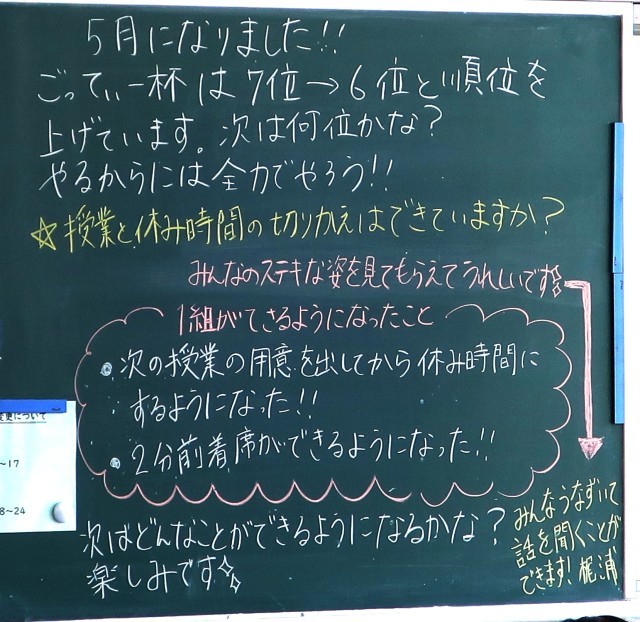 5月になりました!!
ごってぃ一杯は7位→6位と順位を
上げています。次は何位かな?
やるからには全力でやろう!!
☆授業と休み時間の切りかえはできていますか?
みんなのステキな姿を見てもらえてうれしいです
1組ができるようになったこと
・次の授業の用意を出してから休み時間に
するようになった!!
・2分前着席ができるようになった!!
次はどんなことができるようになるかな?
楽しみです
みんなうなずいて
話を聞くことが
できます!梶浦
変更について
~17
8~24